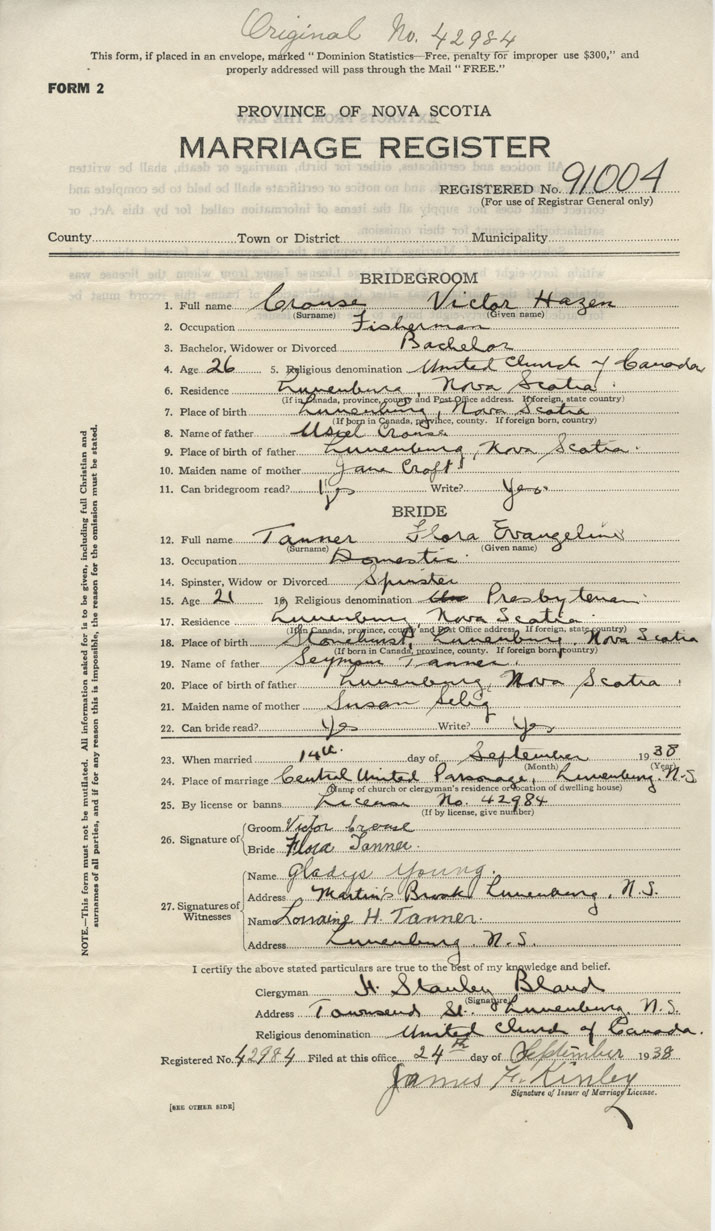 Original No. 42984
This form, if placed in an envelope, marked "Dominion Statistics—Free, penalty for improper use $300," and
properly addressed will pass through the Mail "FREE."
FORM 2
PROVINCE OF NOVA SCOTIA
MARRIAGE REGISTER
REGISTERED No. 91004
(For use of Registrar General only)
County Town or District Municipality
BRIDEGROOM
1. Full name Crouse Victor Hazen
(Surname) (Given name)
2. Occupation Fisherman
3. Bachelor, Widower or Divorced Bachelor
4. Age 26 5. Religious denomination United Church of Canada
6. Residence Lunenburg, Nova Scotia.
(If in Canada, province, county and Post Office address. If foreign, state country)
7. Place of birth Lunenburg, Nova Scotia
(If born in Canada, province, county. If foreign born, country)
8. Name of father Crouse
9. Place of birth of father Lunenburg, Nova Scotia.
10. Maiden name of mother Jane Croft
11. Can bridegroom read? Yes Write? Yes.
BRIDE
12. Full name Tanner Flora Evangeline
(Surname) (Given name)
13. Occupation Domestic.
14. Spinster, Widow or Divorced Spinster
15. Age 21 16. Religious denomination Presbyterian
17. Residence Lunenburg, Nova Scotia.
(If in Canada, province, county and Post Office address. If foreign, state country)
18. Place of birth Stonehurst, Lunenburg, Nova Scotia
(If born in Canada, province, county. If foreign born, country)
19. Name of father Seymour Tanner.
20. Place of birth of father Lunenburg, Nova Scotia.
21. Maiden name of mother Susan Selig
22. Can bride read? Yes Write? Yes
23. When married 14th. day of September 1938
(Month) (Year)
24. Place of marriage Central United Parsonage, Lunenburg. N.S.
(Name of church or clergyman's residence or location of dwelling house)
25. By license or banns. License No. 42984
(If by license, give number)
26. Signature of
Groom Victor Crouse
Bride Flora Tanner.
27. Signatures of Witnesses
Name Gladys Young.
Address Martin's Brook Lunenburg, N.S.
Name Lorraine H. Tanner.
Address Lunenburg. N.S.
I certify the above stated particulars are true to the best of my knowledge and belief.
Clergyman H. Stanley Bland
(Signature)
Address Townsend St. Lunenburg. N.S.
Religious denomination United Church of Canada.
Registered No. 42984 Filed at this office 24th day of September 1938
James F. Kinley
Signature of Issuer of Marriage License.
[SEE OTHER SIDE]
NOTE.—This form must not be mutilated. All information asked for is to be given, including full Christian and
surnames of all parties, and if for any reason this is impossible, the reason for the omission must be stated.